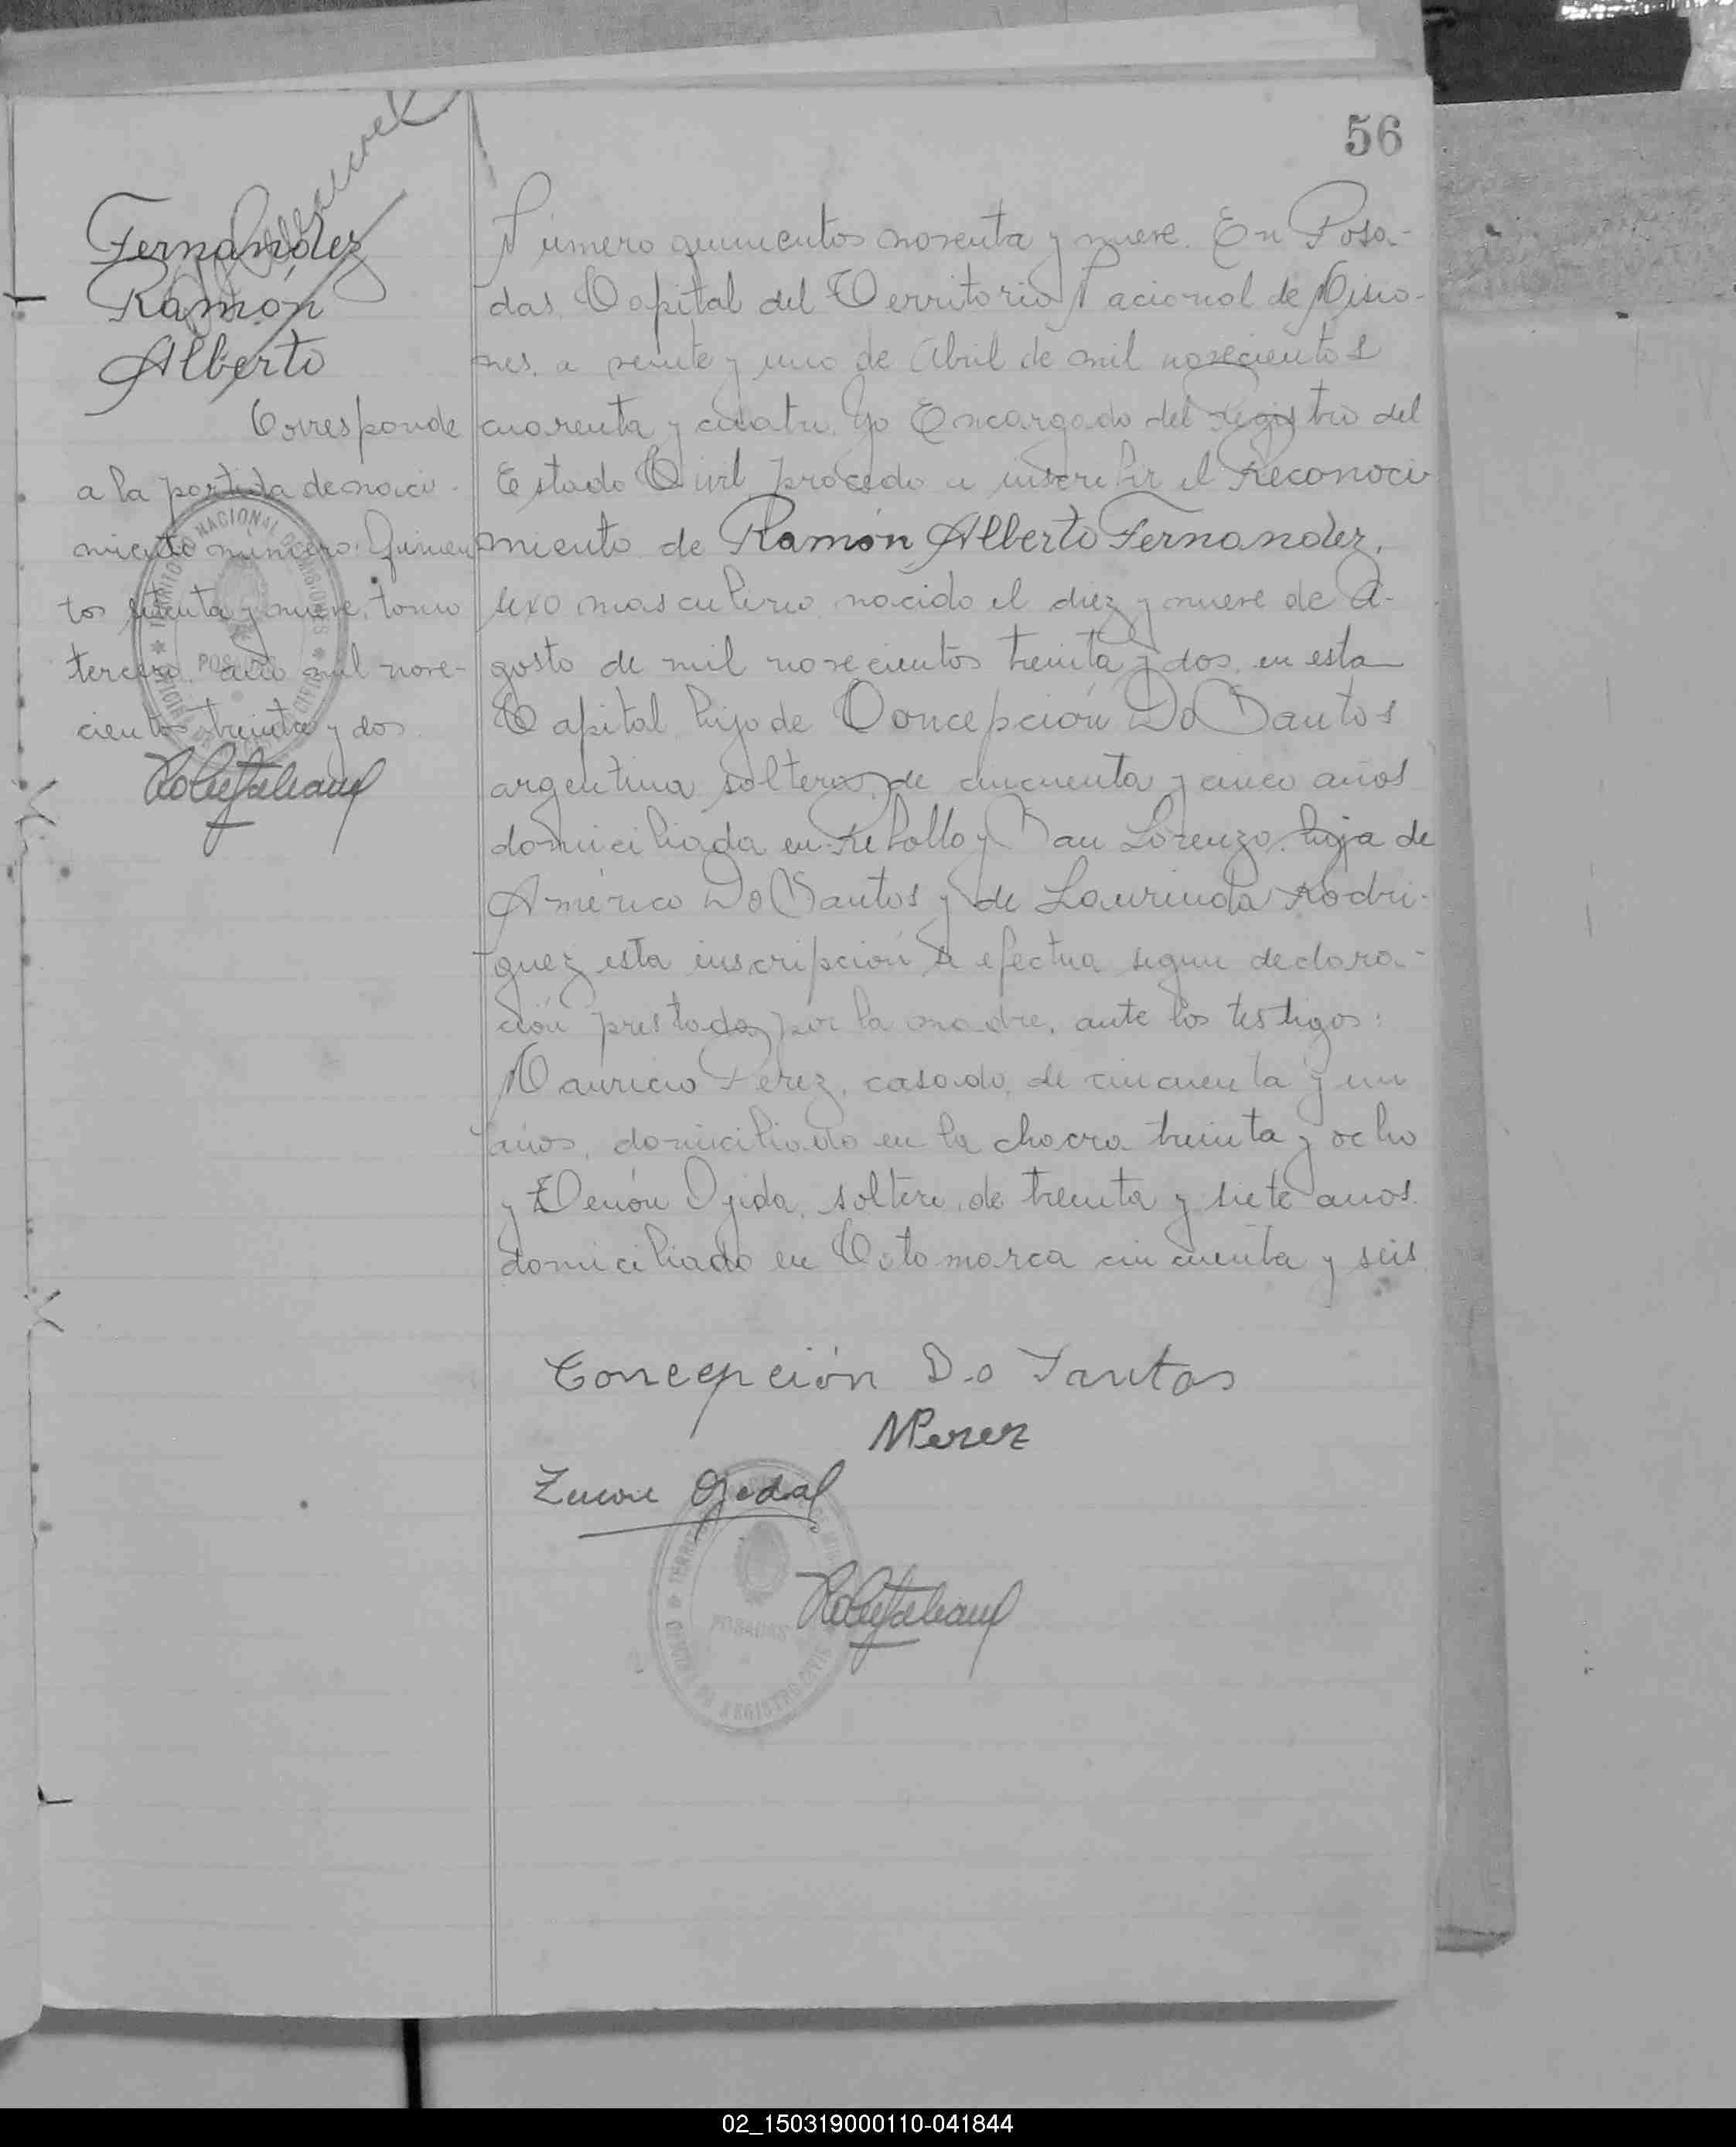 56
Fernandez
Ramón
Alberto
Corresponde
a la partida de naci-
miento número: Quinien
tos setenta y nueve, tomo
tercero. año mil nove-
cientos treinta y dos.
Número quinientos noventa y nueve. En Posa-
das, Capital del Territorio Nacional de Misio-
nes, a veinte y uno de Abril de mil novecientos
cuarenta y cuatro. Yo Encargado del Registro del
Estado Civil, procedo a inscribir el Reconoci
miento de Ramón Alberto Fernandez,
sexo masculino nacido el diez y nueve de A-
gosto de mil novecientos treinta y dos, en esta
Capital hijo de Concepción Do Santos
argentina soltera, de cincuenta y cinco años
domiciliada en Rebollo y San Lorenzo. hija de
Américo Do Santos y de Laurinda Rodri-
guez esta inscripción se efectua segun declara-
ción prestada por la madre, ante los testigos:
Mauricio Perez, casado, de cincuenta y un
años, domiciliado en la chacra treinta y ocho
y Zenón Ojeda, soltero, de treinta y siete anos.
domiciliado en Catamarca cincuenta y seis
Concepción Do Santos
MPerez
Zenon Ojeda
TERRITORIO NACIONAL DE MISIONES
POSADAS
OFICINA DE REGISTRO CIVIL
02_150319000110-041844